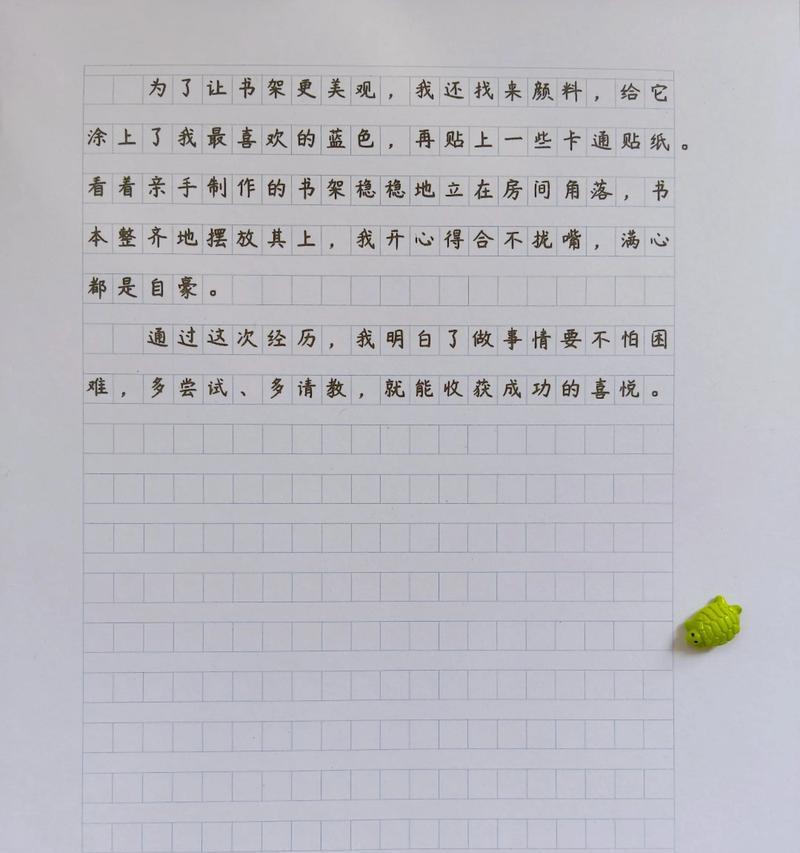 为了让书架更美观，我还找来颜料，给它
涂上了我最喜欢的蓝色，再贴上一些卡通贴纸。
看着亲手制作的书架稳稳地立在房间角落，书
本整齐地摆放其上，我开心得合不拢嘴，满心
都是自豪。
通过这次经历，我明白了做事情要不怕困
难，多尝试、多请教，就能收获成功的喜悦。